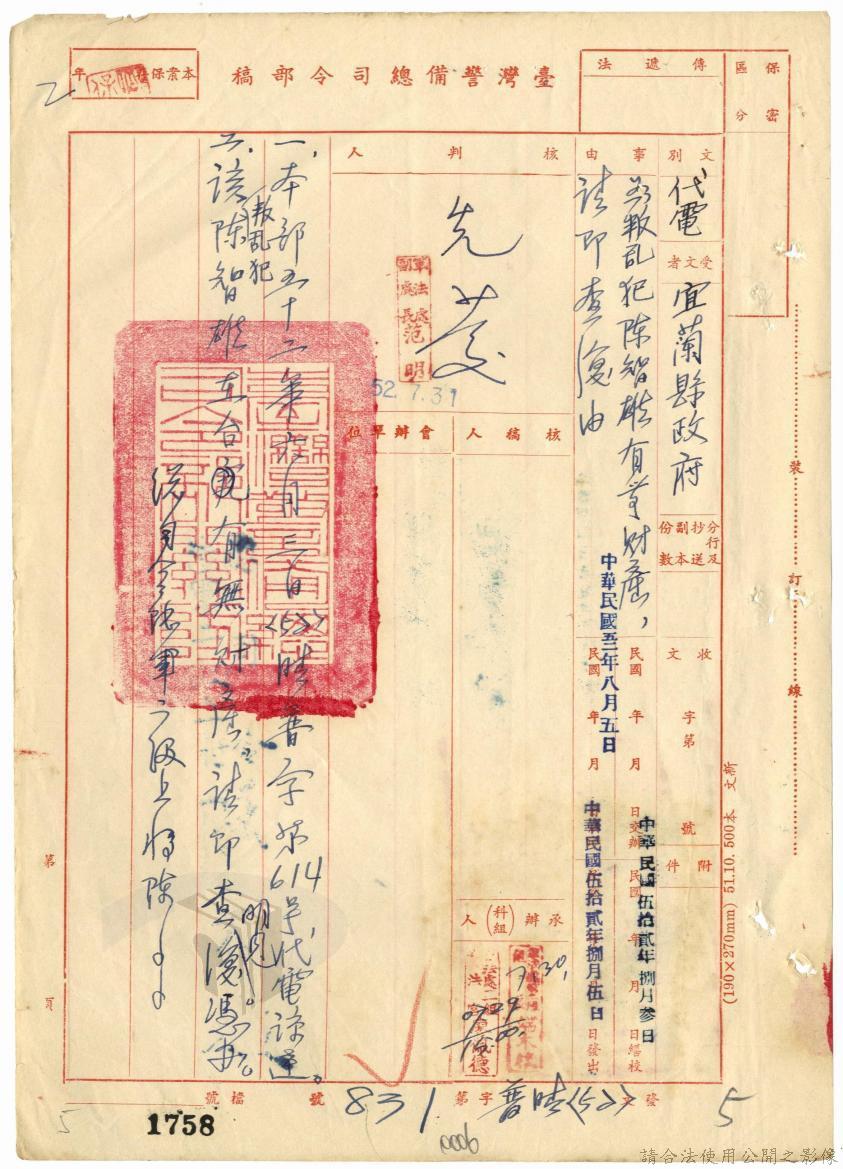 保密
區分
傳遞法
臺灣警備總司令部稿
本案保
年
文別
代電
受文者
宜蘭縣政府
分行及抄送副本份數
收文
字第
號
附件
事由
為叛乱犯陳智雄有無財產，
請即查復由
中華民國五二年八月五日
民國 年 月 日交辦
民國 年 月 日繕校
民國 年 月 日發出
中華民國伍拾貳年捌月參日
中華民國伍拾貳年捌月伍日
核判人
先發
軍法處副處長范明
52.7.31
核稿人
會辦單位
承辦(科組)人
7.30.
0729
1500
一、本部五十二年六月三日〈52〉晴普字第614號代電諒達。
二、該叛乱犯陳智雄在台究有無財產，請即查明見復憑辦。
總司令陸軍二級上將陳〇〇
裝訂線
(190×270mm) 51.10. 500本 文新
第
頁
發文
〈52〉晴普
字第
831
號
檔號
1758
5
5
2
0006
請合法使用公開之影像